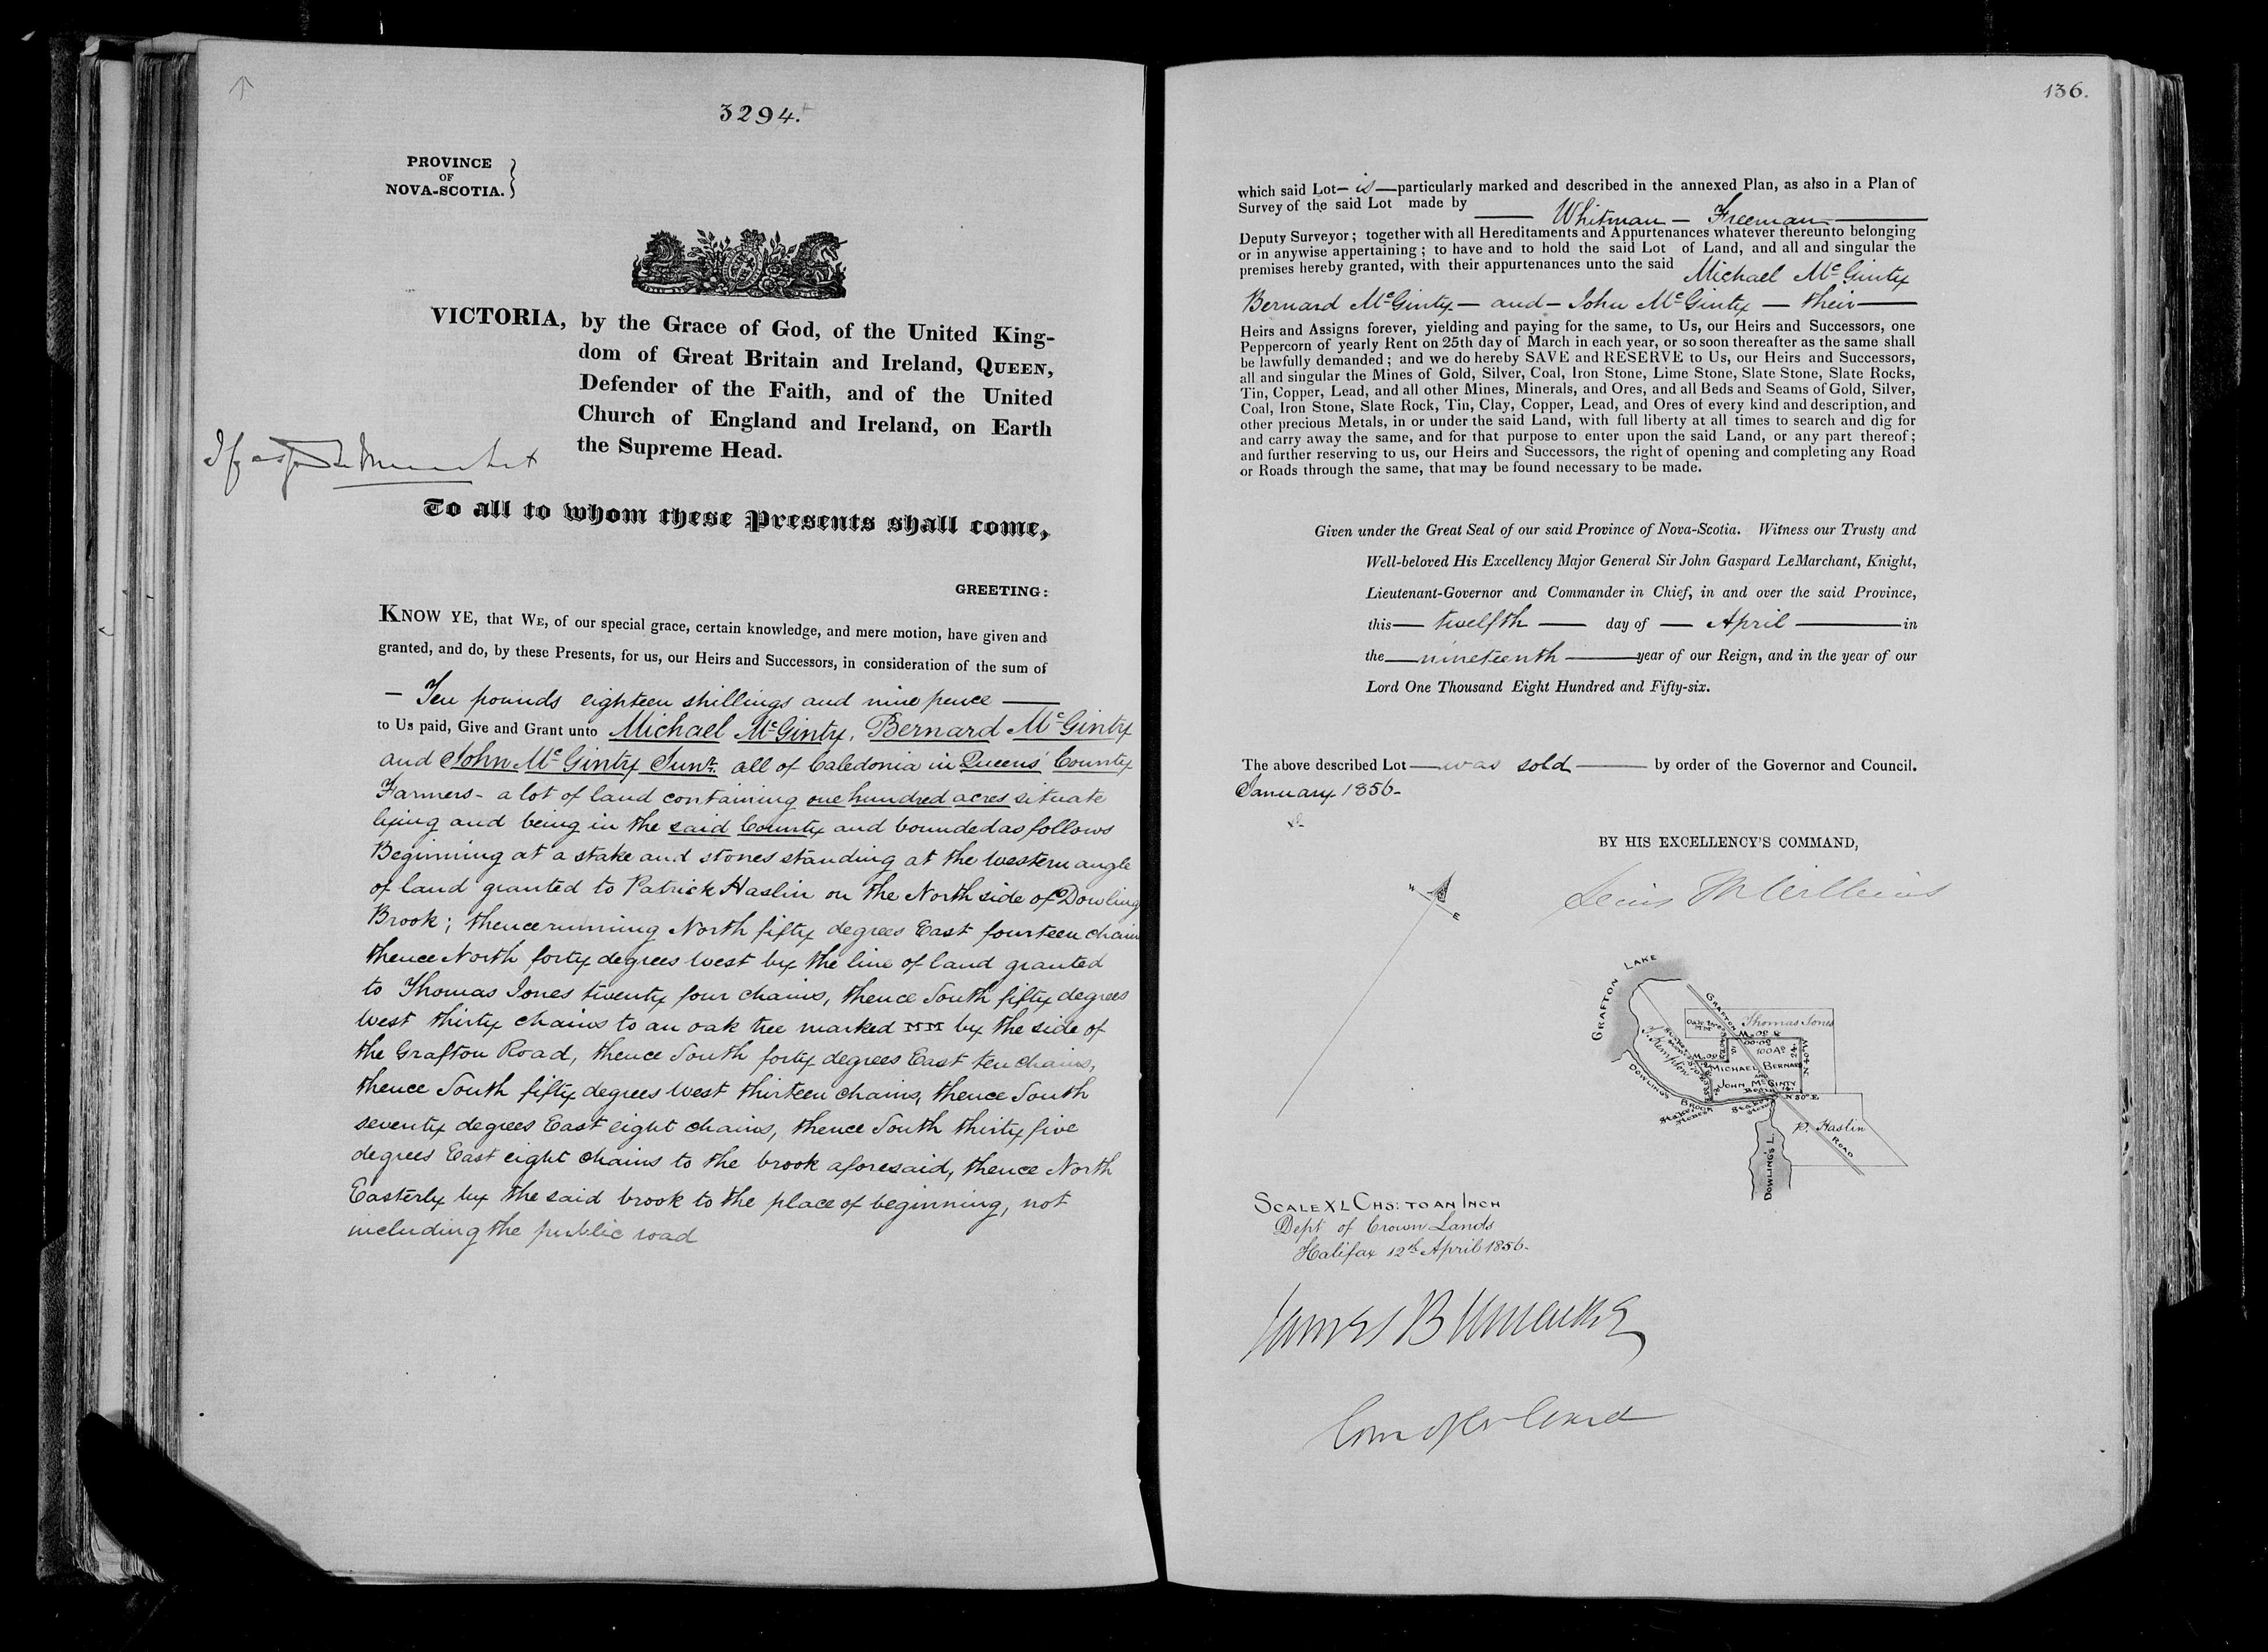 3294.
PROVINCE
OF
NOVA-SCOTIA.
VICTORIA, by the Grace of God, of the United King-
dom of Great Britain and Ireland, QUEEN,
Defender of the Faith, and of the United
Church of England and Ireland, on Earth
the Supreme Head.
To all to whom these Presents shall come,
GREETING:
KNOW YE, that WE, of our special grace, certain knowledge, and mere motion, have given and
granted, and do, by these Presents, for us, our Heirs and Successors, in consideration of the sum of
— Ten pounds eighteen shillings and nine pence —
to Us paid, Give and Grant unto Michael McGinty, Bernard McGinty
and John McGinty Junr. all of Caledonia in Queens' County
Farmers - a lot of land containing one hundred acres situate
lying and being in the said County and bounded as follows
Beginning at a stake and stones standing at the western angle
of land granted to Patrick Haslin on the North side of Dowling
Brook; thence running North fifty degrees East fourteen chains
thence North forty degrees West by the line of land granted
to Thomas Jones twenty four chains, thence South fifty degrees
West thirty chains to an oak tree marked MM by the side of
the Grafton Road, thence South forty degrees East ten chains,
thence South fifty degrees West thirteen chains, thence South
seventy degrees East eight chains, thence South thirty five
degrees East eight chains to the brook aforesaid, thence North
Easterly by the said brook to the place of beginning, not
including the public road
136.
which said Lot — is — particularly marked and described in the annexed Plan, as also in a Plan of
Survey of the said Lot made by — Whitman — Freeman —
Deputy Surveyor; together with all Hereditaments and Appurtenances whatever thereunto belonging
or in anywise appertaining; to have and to hold the said Lot of Land, and all and singular the
premises hereby granted, with their appurtenances unto the said Michael McGinty
Bernard McGinty — and — John McGinty — their —
Heirs and Assigns forever, yielding and paying for the same, to Us, our Heirs and Successors, one
Peppercorn of yearly Rent on 25th day of March in each year, or so soon thereafter as the same shall
be lawfully demanded; and we do hereby SAVE and RESERVE to Us, our Heirs and Successors,
all and singular the Mines of Gold, Silver, Coal, Iron Stone, Lime Stone, Slate Stone, Slate Rocks,
Tin, Copper, Lead, and all other Mines, Minerals, and Ores, and all Beds and Seams of Gold, Silver,
Coal, Iron Stone, Slate Rock, Tin, Clay, Copper, Lead, and Ores of every kind and description, and
other precious Metals, in or under the said Land, with full liberty at all times to search and dig for
and carry away the same, and for that purpose to enter upon the said Land, or any part thereof;
and further reserving to us, our Heirs and Successors, the right of opening and completing any Road
or Roads through the same, that may be found necessary to be made.
Given under the Great Seal of our said Province of Nova-Scotia. Witness our Trusty and
Well-beloved His Excellency Major General Sir John Gaspard LeMarchant, Knight,
Lieutenant-Governor and Commander in Chief, in and over the said Province,
this — twelfth — day of — April — in
the — nineteenth — year of our Reign, and in the year of our
Lord One Thousand Eight Hundred and Fifty-six.
The above described Lot — was sold — by order of the Governor and Council.
January 1856-
BY HIS EXCELLENCY'S COMMAND,
Lewis M Wilkins
GRAFTON LAKE
GRAFTON
Thomas Jones
100 As
MICHAEL BERNARD
AND
JOHN McGINTY
DOWLINGS BROOK
N 50° E
P. Haslin
ROAD
DOWLING'S L.
SCALE XL CHS: TO AN INCH
Dept of Crown Lands
Halifax 12th April 1856-
James B Uniacke
Com of Cr Land